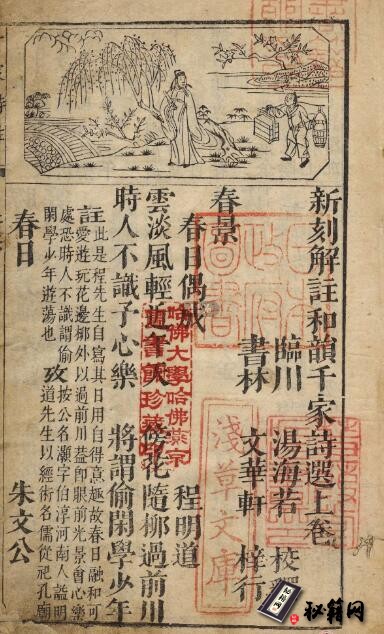 新刻解註和韻千家詩選上卷
臨川 湯海若 校釋
書林 文華軒 梓行
春景
春日偶成 程明道
雲淡風輕近午天 傍花隨柳過前川
時人不識予心樂 將謂偷閑學少年
註此是程先生自寫其日用自得意趣故春日融和可
愛遊玩花邊柳外以過前川益即眼前光景會心樂
處恐時人不識謂偷閑學少年遊蕩也
攷按公名顥字伯淳河南人謚明
道先生以經術名儒從祀孔廟
春日 朱文公
哈佛大學哈佛燕京
圖書館珍藏印
淺草文庫
秘籍网